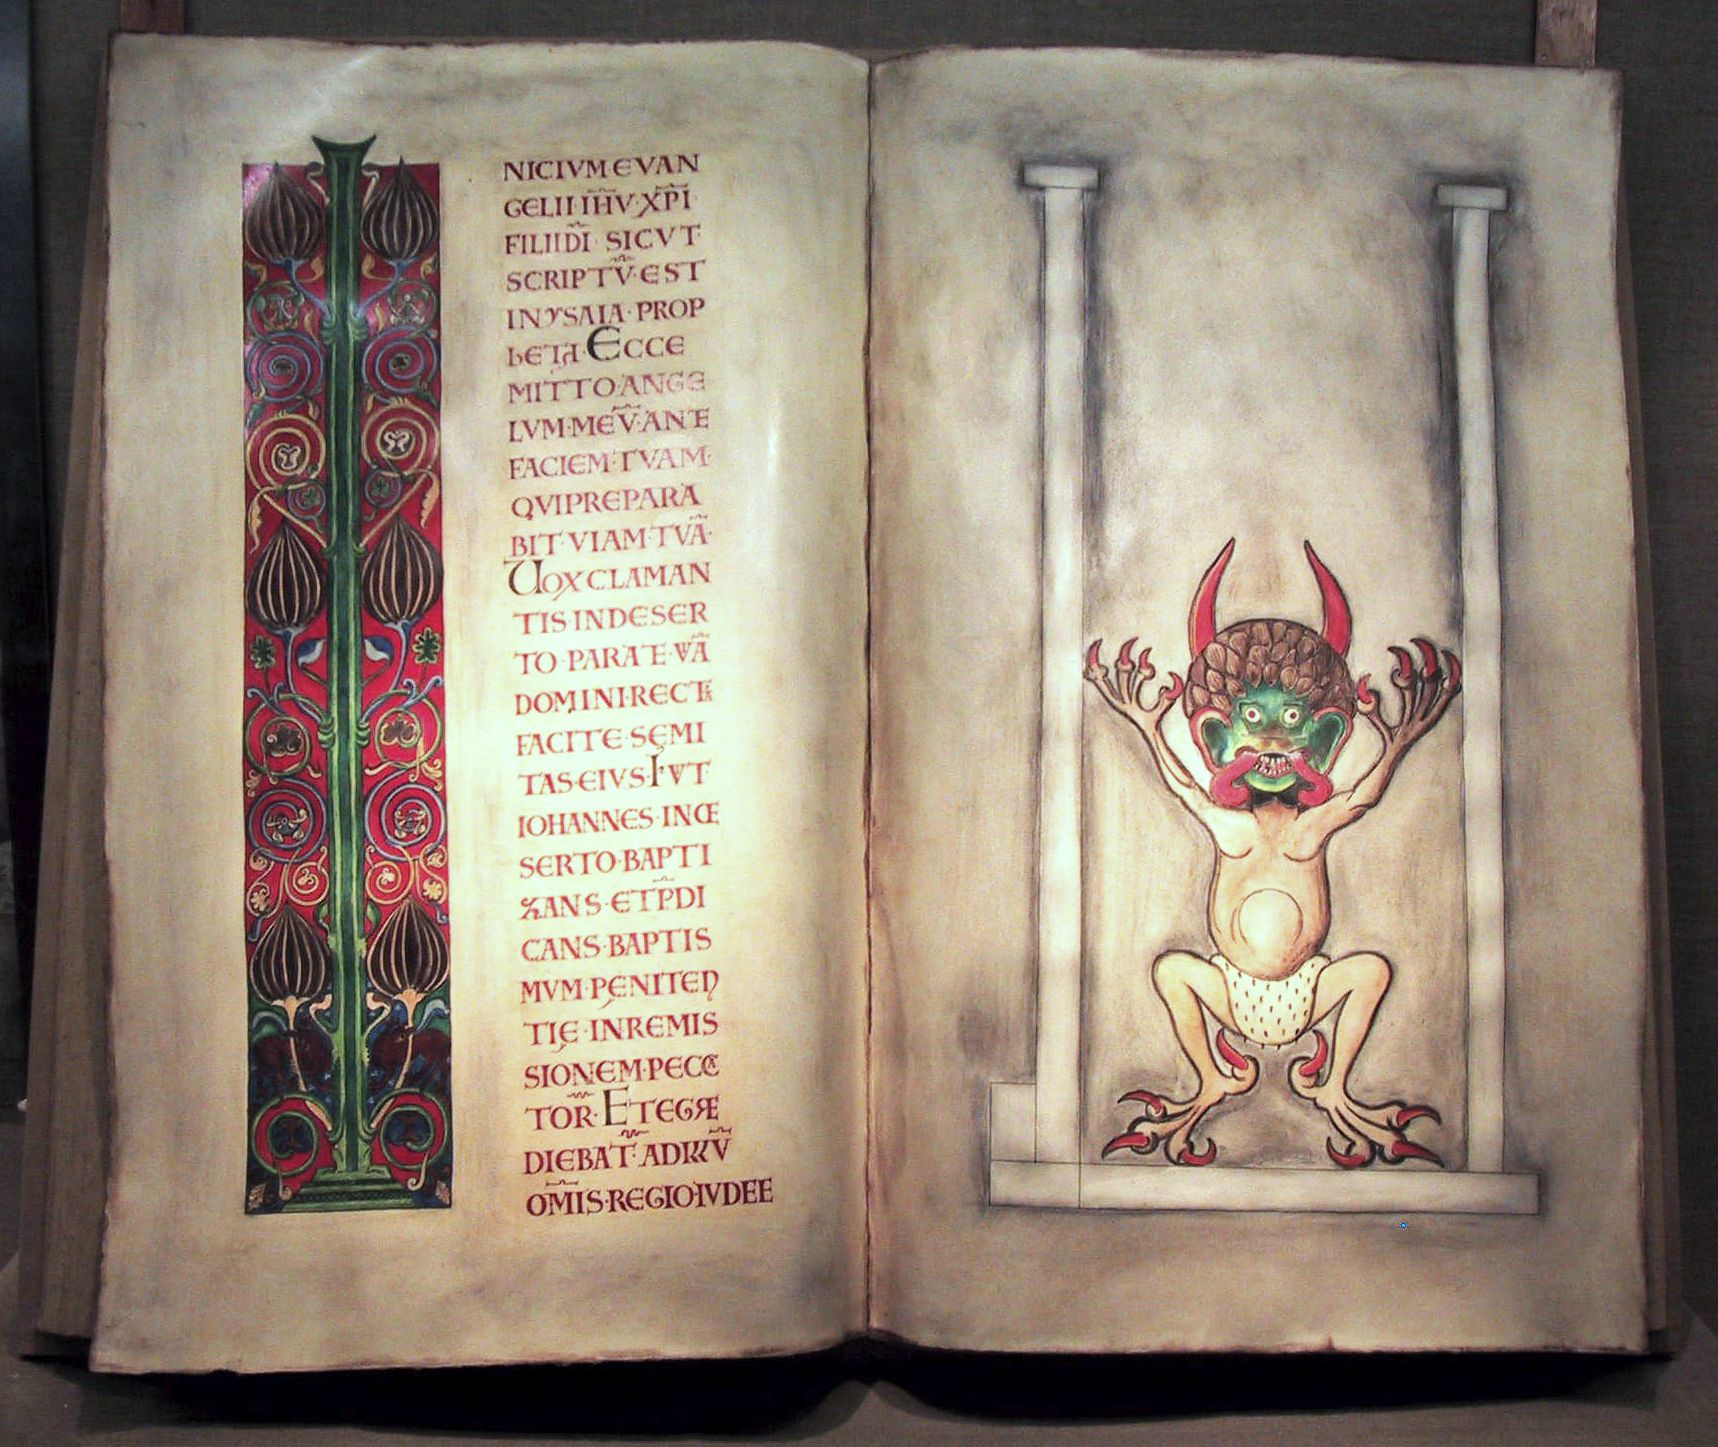 NICIVM·EVAN
GELII·IHV·XPI·
FILII DI· SICVT
SCRIPTV·EST
IN YSAIA· PROP
hETA· ECCE
MITTO·ANGE
LVM·MEV·ANTE
FACIEM·TVAM·
QVI PREPARA
BIT·VIAM·TVA·
VOX CLAMAN
TIS·IN DESER
TO·PARATE·VIA
DOMINI·RECTAS
FACITE·SEMI
TAS·EIVS·FVIT·
IOHANNES·IN DE
SERTO·BAPTI
ZANS·ET PDI
CANS·BAPTIS
MVM·PENITEN
TIE·IN REMIS
SIONEM·PECCA
TOR· ET EGRE
DIEBAT·AD ILLV
OMIS·REGIO·IVDEE